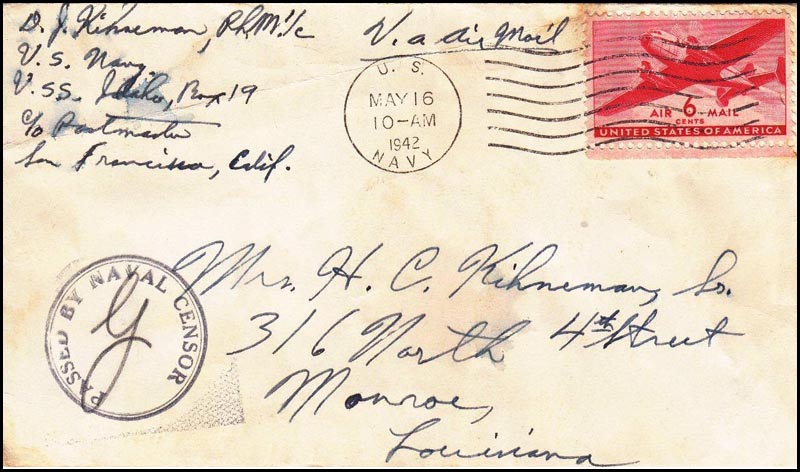 D. J. Kihneman, PhM1/c
U. S. Navy
U.S.S. Idaho, Box 19
c/o Postmaster
San Francisco, Calif.
Via Air Mail
U. S.
MAY 16
10-AM
1942
NAVY
AIR 6 MAIL
CENTS
UNITED STATES OF AMERICA
PASSED BY NAVAL CENSOR
Mrs. H. C. Kihneman, Sr.
316 North 4th Street
Monroe,
Louisiana